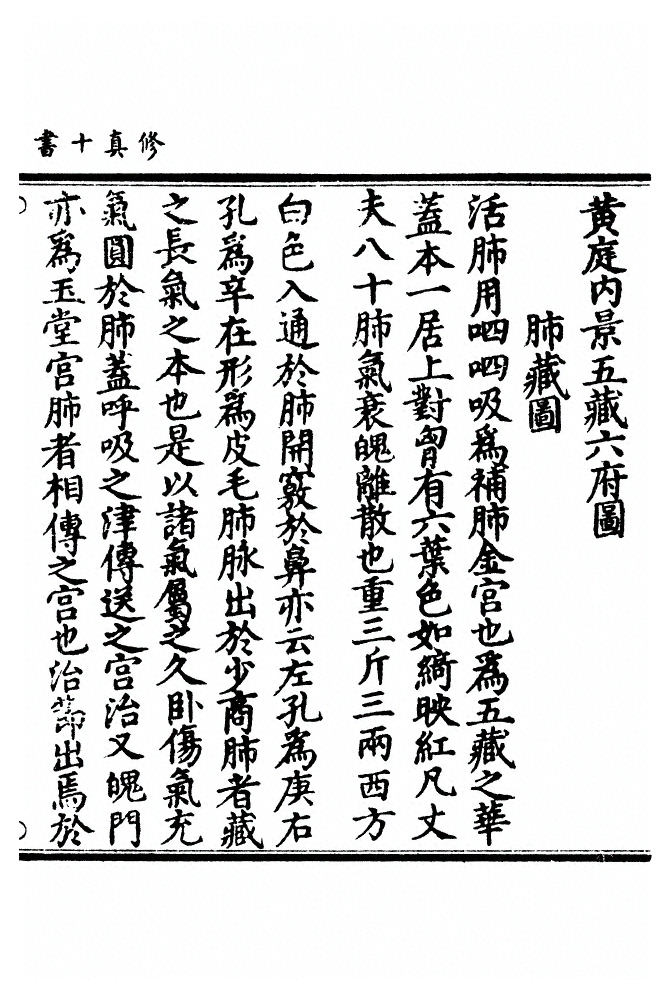 修真十書
黄庭内景五藏六府圖
肺藏圖
活肺用呬呬吸爲補肺金宮也爲五藏之華
蓋本一居上對胷有六葉色如縞映紅凡丈
夫八十肺氣衰魄離散也重三斤三兩西方
白色入通於肺開竅於鼻亦云左孔爲庚右
孔爲辛在形爲皮毛肺脉出於少商肺者藏
之長氣之本也是以諸氣屬之久卧傷氣充
氣圓於肺蓋呼吸之津傳送之宮治又魄門
亦爲玉堂宮肺者相傳之宮也治節出焉於